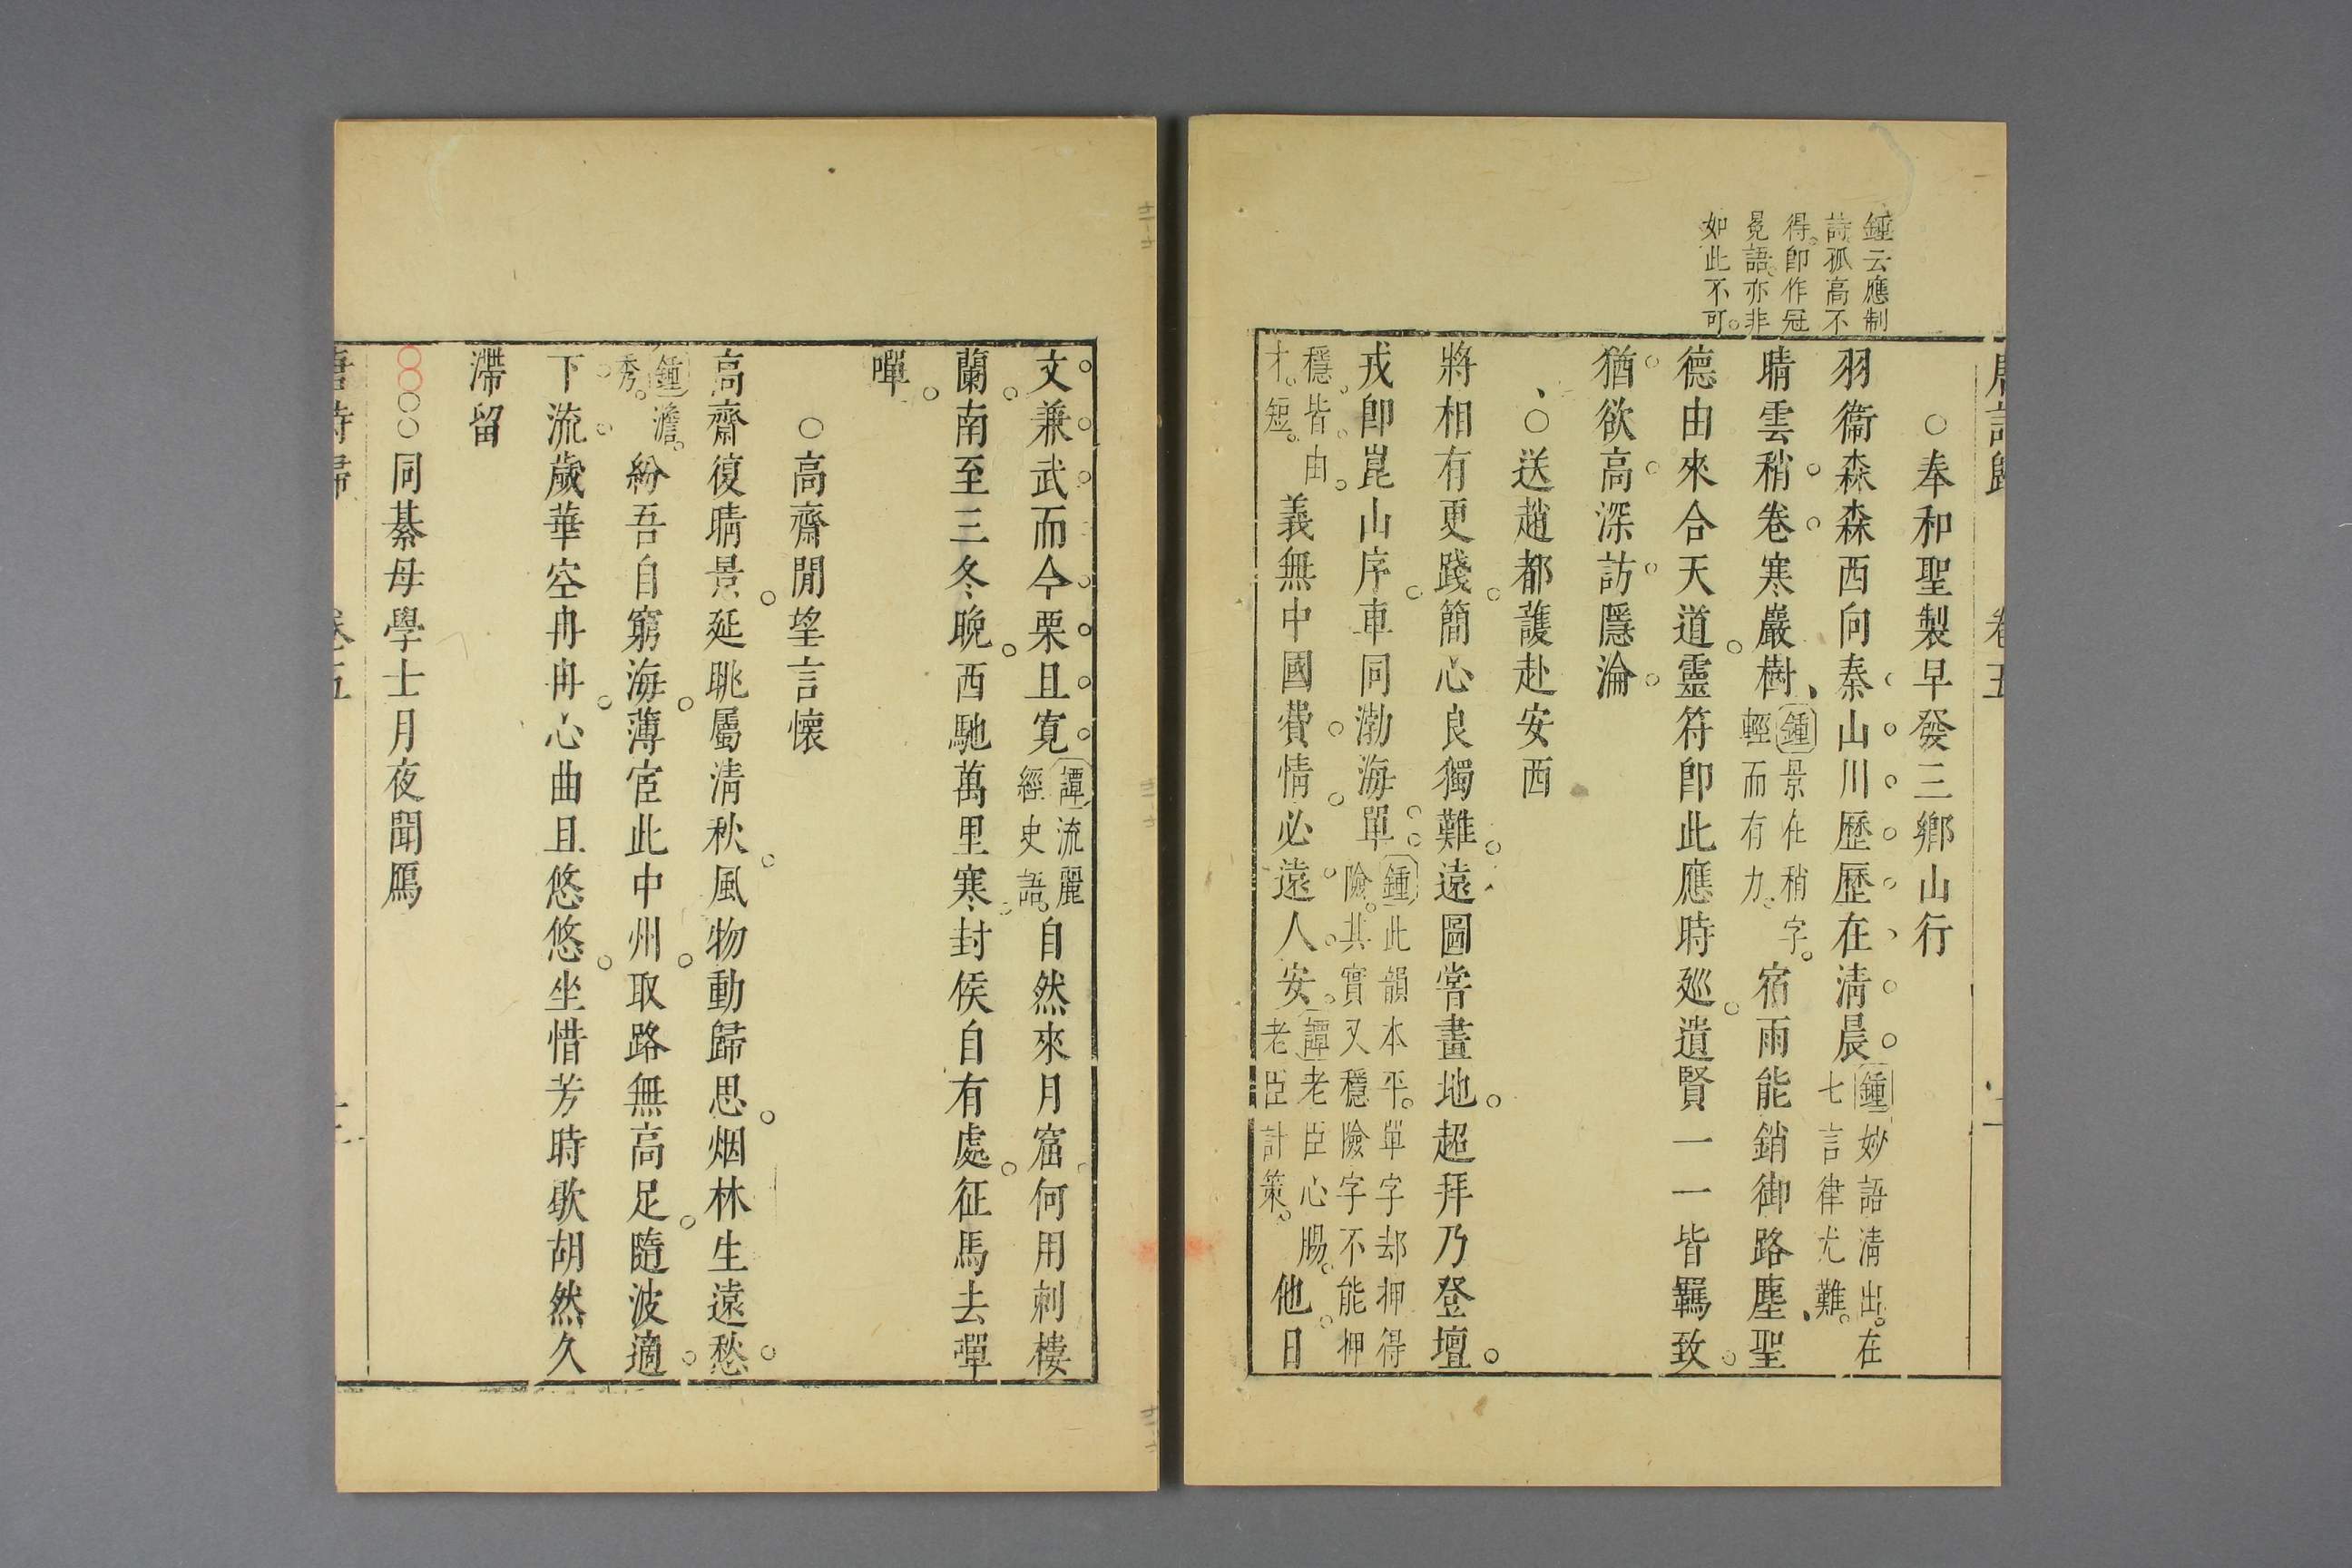 鍾云應制
詩孤高不
得卽作冠
冕語亦非
如此不可
唐詩歸 卷五
○奉和聖製早發三鄉山行
羽衞森森西向秦山川歷歷在清晨鍾妙語清出在七言律尤難
晴雲稍卷寒巖樹鍾景在稍字輕而有力宿雨能銷御路塵聖
德由來合天道靈符卽此應時廵遺賢一一皆羈致
猶欲高深訪隱淪
○送趙都護赴安西
將相有更踐簡心良獨難遠圖嘗畫地超拜乃登壇
戎卽崑山序車同渤海單鍾此韻本平單字却押得險其實又穩險字不能押
穩皆由才短義無中國費情必遠人安譚老臣心腸老臣計策他日
文兼武而今栗且寬譚流麗經史語自然來月窟何用刺樓
蘭南至三冬晚西馳萬里寒封侯自有處征馬去嘽
嘽
○高齋閒望言懷
高齋復晴景延眺屬清秋風物動歸思烟林生遠愁
鍾澹秀紛吾自窮海薄宦此中州取路無高足隨波適
下流歲華空冉冉心曲且悠悠坐惜芳時歇胡然久
滯留
○○○○同綦毋學士月夜聞鴈
唐詩歸 卷五